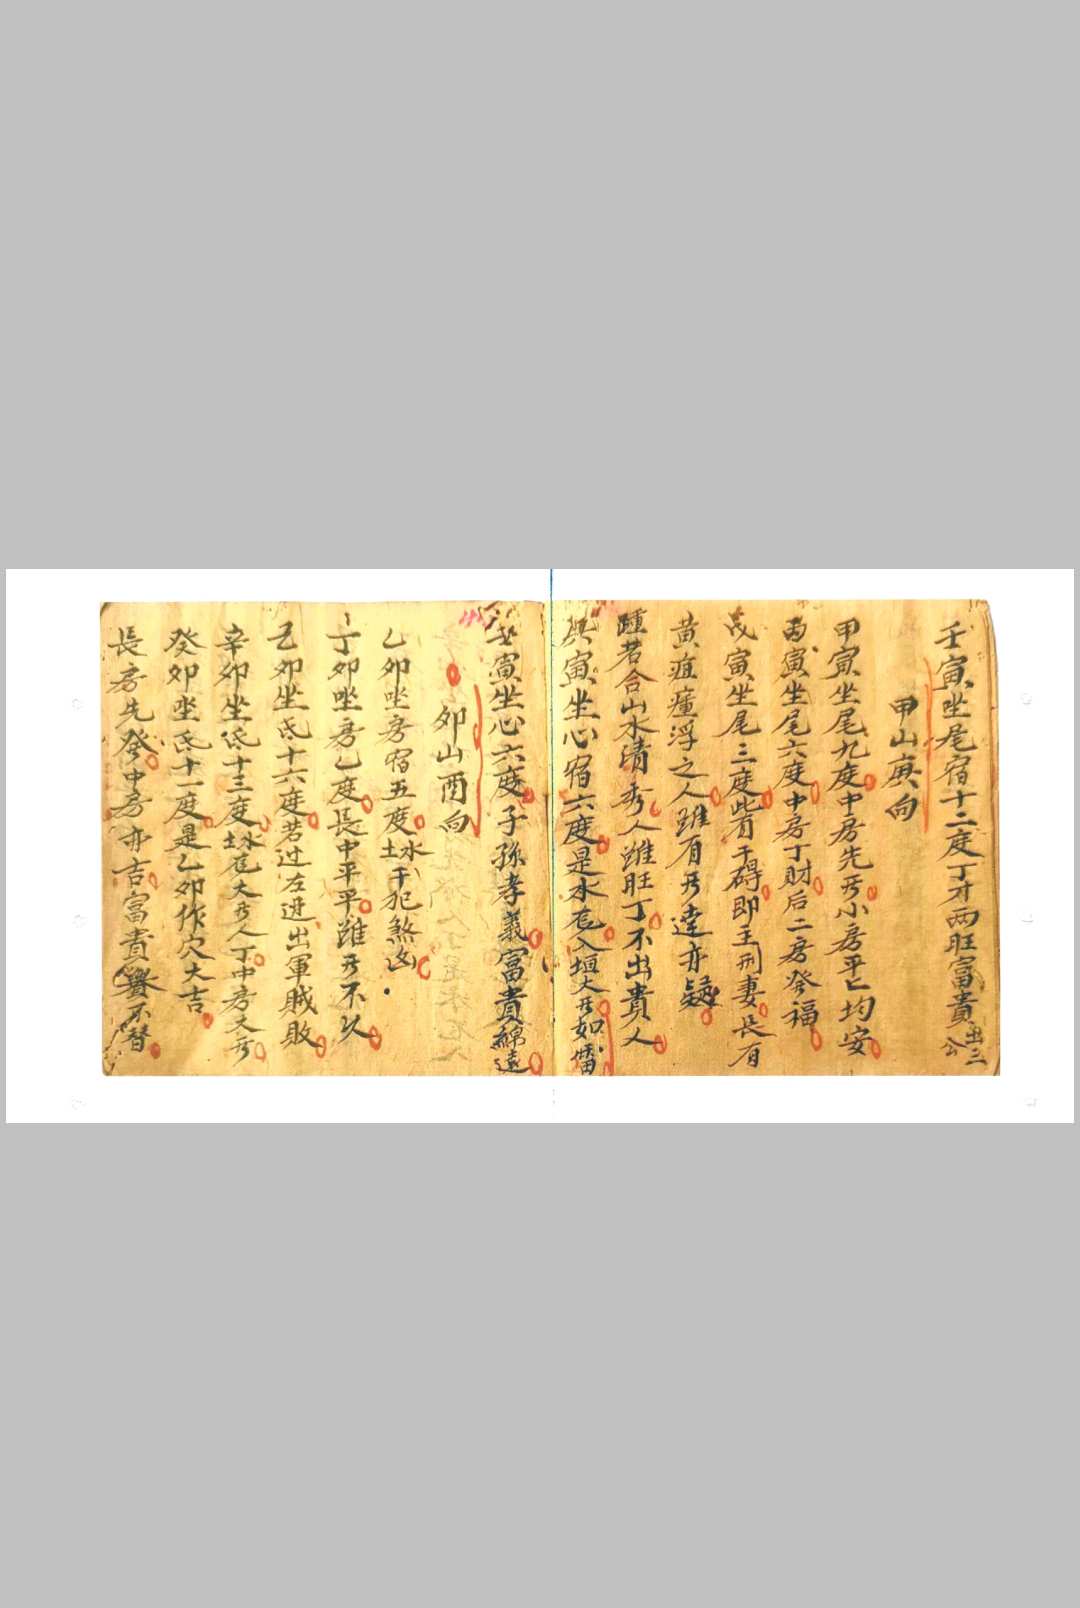 壬寅坐尾宿十二度丁才两旺富貴出三公
甲山庚向
甲寅坐尾九度中房先發小房平匕均安
丙寅坐尾六度中房丁財后二房癸福
戊寅坐尾三度皆有干碍即主刑妻長有
黄疸瘇浮之人雖有發達亦
踵若合山水清秀人雖旺丁不出貴人
庚寅坐心宿六度是水入垣大發如
寅坐心六度子孫孝義富貴綿遠
卯山酉向
乙卯坐房宿五度水干犯煞凶
丁卯坐房乙度長中平平雖發不久
己卯坐氐十六度若过左进出軍賊敗
辛卯坐氐十三度水大發人丁中房又發
癸卯坐氐十一度是乙卯作穴大吉
長房先癸中房亦吉富貴不替